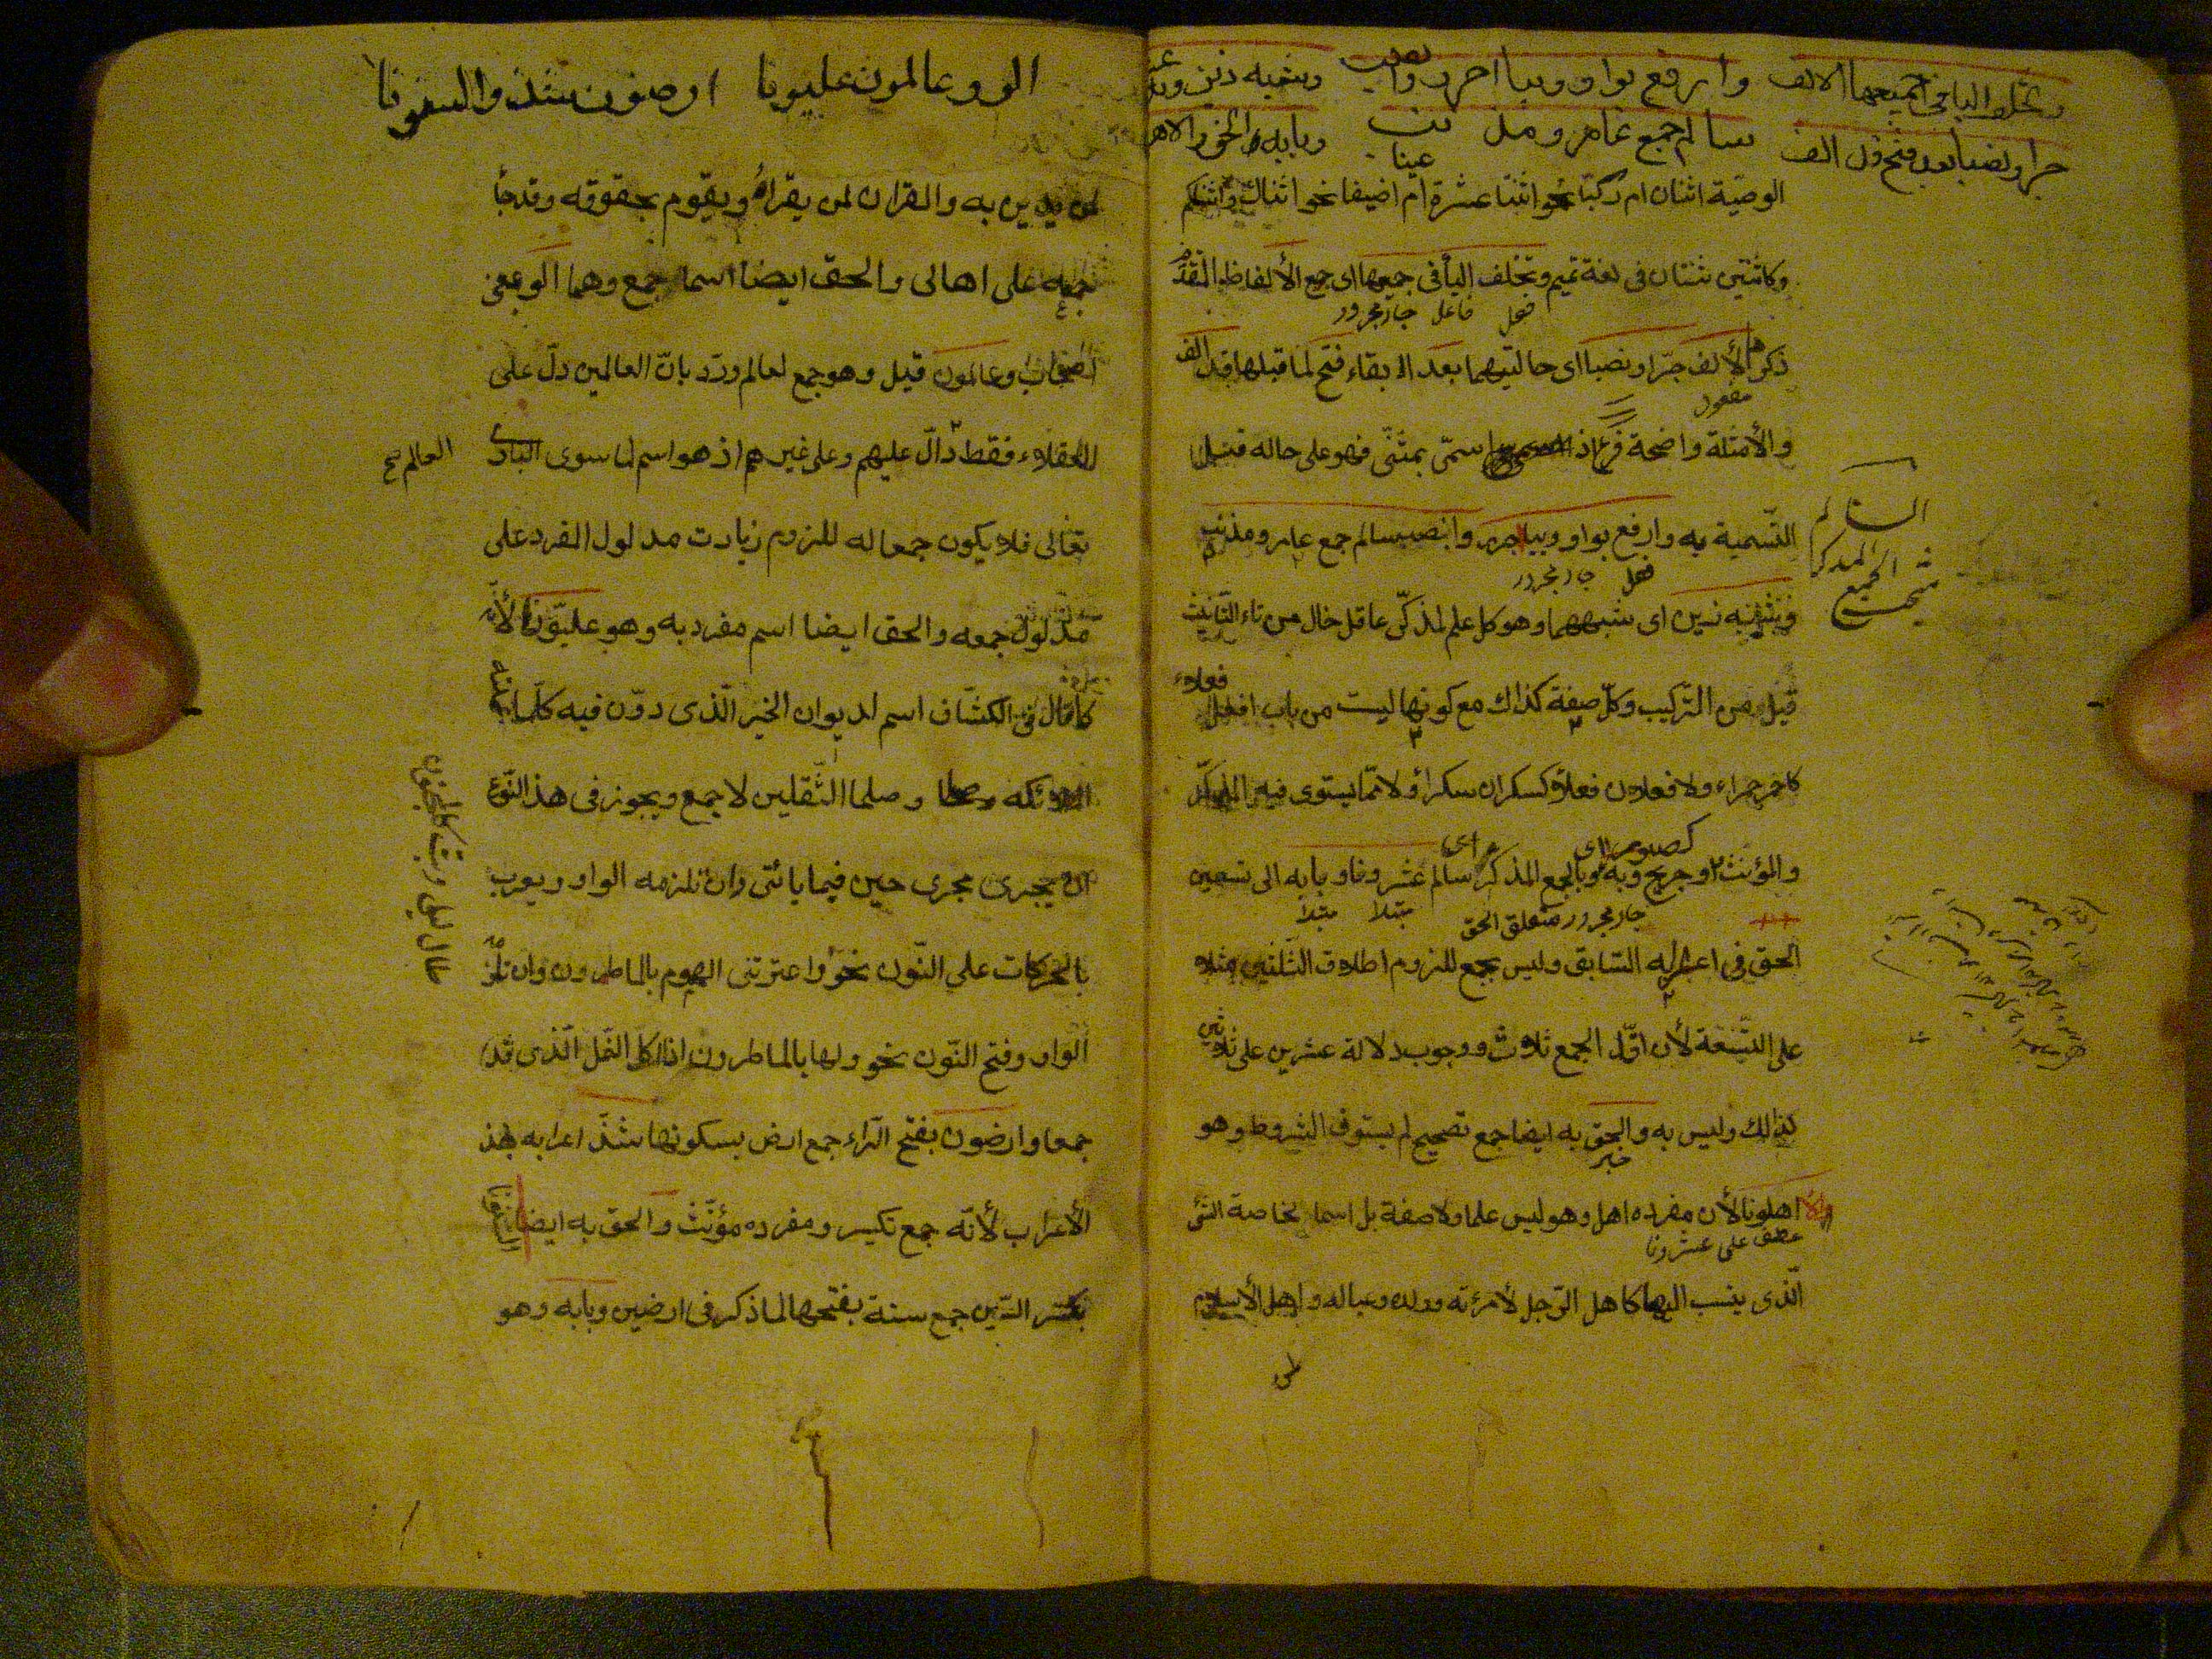 وتخلف اليا في جميعها الالف وارفع بواو وبيا اجرر وانصب وشبه ذين وبه
جرا ونصبا بعد فتح قد الف سالم جمع عامر ومذنب وبابه الحق والاهلـ
الوصيّة اثنان ام ركبّتا نحو اثنتا عشرة ام اضيفا نحو اثناك واثناكم
عينا
وكاثنتين ثنتان فى لغة تميم وتخلف اليأ فى جميعها اى جمع الألفاظ المتقدّم
فعل فاعل جار مجرور
ذكرها الألف جرّا ونصبا اى حالتيهما بعد ابقاء فتح لما قبلها قد الف
مفعول
والأمثلة واضحة فرع اذ اسمّى بمثنّى فهو على حاله قبل
التّسمية به وارفع بواو وبيا اجرر وانصب سالم جمع عامر ومذنب
السّالم
المذكر
الجمع
فعل جار مجرور
وشبه ذين اى شبههما وهو كل علم لمذكّر عاقل خال من تاء التّأنيث
قيل ومن التّركيب وكلّ صفة كذلك مع كونها ليست من باب افعل فعلاء
كاحمر حمراء ولا فعلان فعلى كسكران سكرى ولا ممّا يستوى فيه المذكّر
كصبور اى
والمؤنث وجريح وبه وبالجمع المذكر سالم عشرونا وبابه الى تسعين
جار مجرور متعلق الحق مبتدا مبتدا
الحق فى اعرابه السّابق وليس بجمع للزوم اطلاق الثّلثين مثلا
على التّسعة لأن اوّل الجمع ثلاث ووجوب دلالة عشرين على ثلاثين
كذالك وليس به والحق به ايضا جمع تصحيح لم يستوف الشروط وهو
خبر
والاهلونا لأن مفرده اهل وهو ليس علما ولا صفة بل اسما لخاصة الشئ
عطف على عشرونا
الّذى ينسب اليها كاهل الرّجل لأمرءته وولده وعياله واهل الأسلام
الوو عالمون عليونا ارضون شذ والسنونا
لمن يدين به والقران لمن يقراه ويقوم بحقوقه وقد جأ
جمعه على اهالى والحق ايضا اسما جمع وهما الو بمعنى
اصحاب وعالمون قيل وهو جمع لعالم وردّ بانّ العالمين دلّ على
للعقلاء فقط دالّ عليهم وعلى غيرهم اذ هو اسم لما سوى البارى
العالم صح
تعالى فلا يكون جمعا له للزوم زيادت مدلول المفرد على
مدلول جمعه والحق ايضا اسم مفرد به وهو عليّونا لأنّه
كما قال فى الكشّاف اسم لديوان الخير الّذى دوّن فيه كلّما عملته
الملائكة وصلحا الثّقلين لا جمع ويجوز فى هذ النّوع
ان يجرى مجرى حين فيما يأتى وان تلزمه الواو ويعرب
بالحركات على النّون نحو واعترتنى الهموم بالماطرون وان تلزمه
الواو وفتح النّون نحو ولها بالماطرون اذا اكل النّمل الّذى
جمعا وارضون بفتح الرّاء جمع ارض بسكونها شذّ اعرابه هذ
الأعراب لأنّه جمع تكسير ومفرده مؤنّث والحق به ايضا السّنونا
بكسر السّين جمع سنة بفتحها لما ذكر فى ارضين وبابه وهو